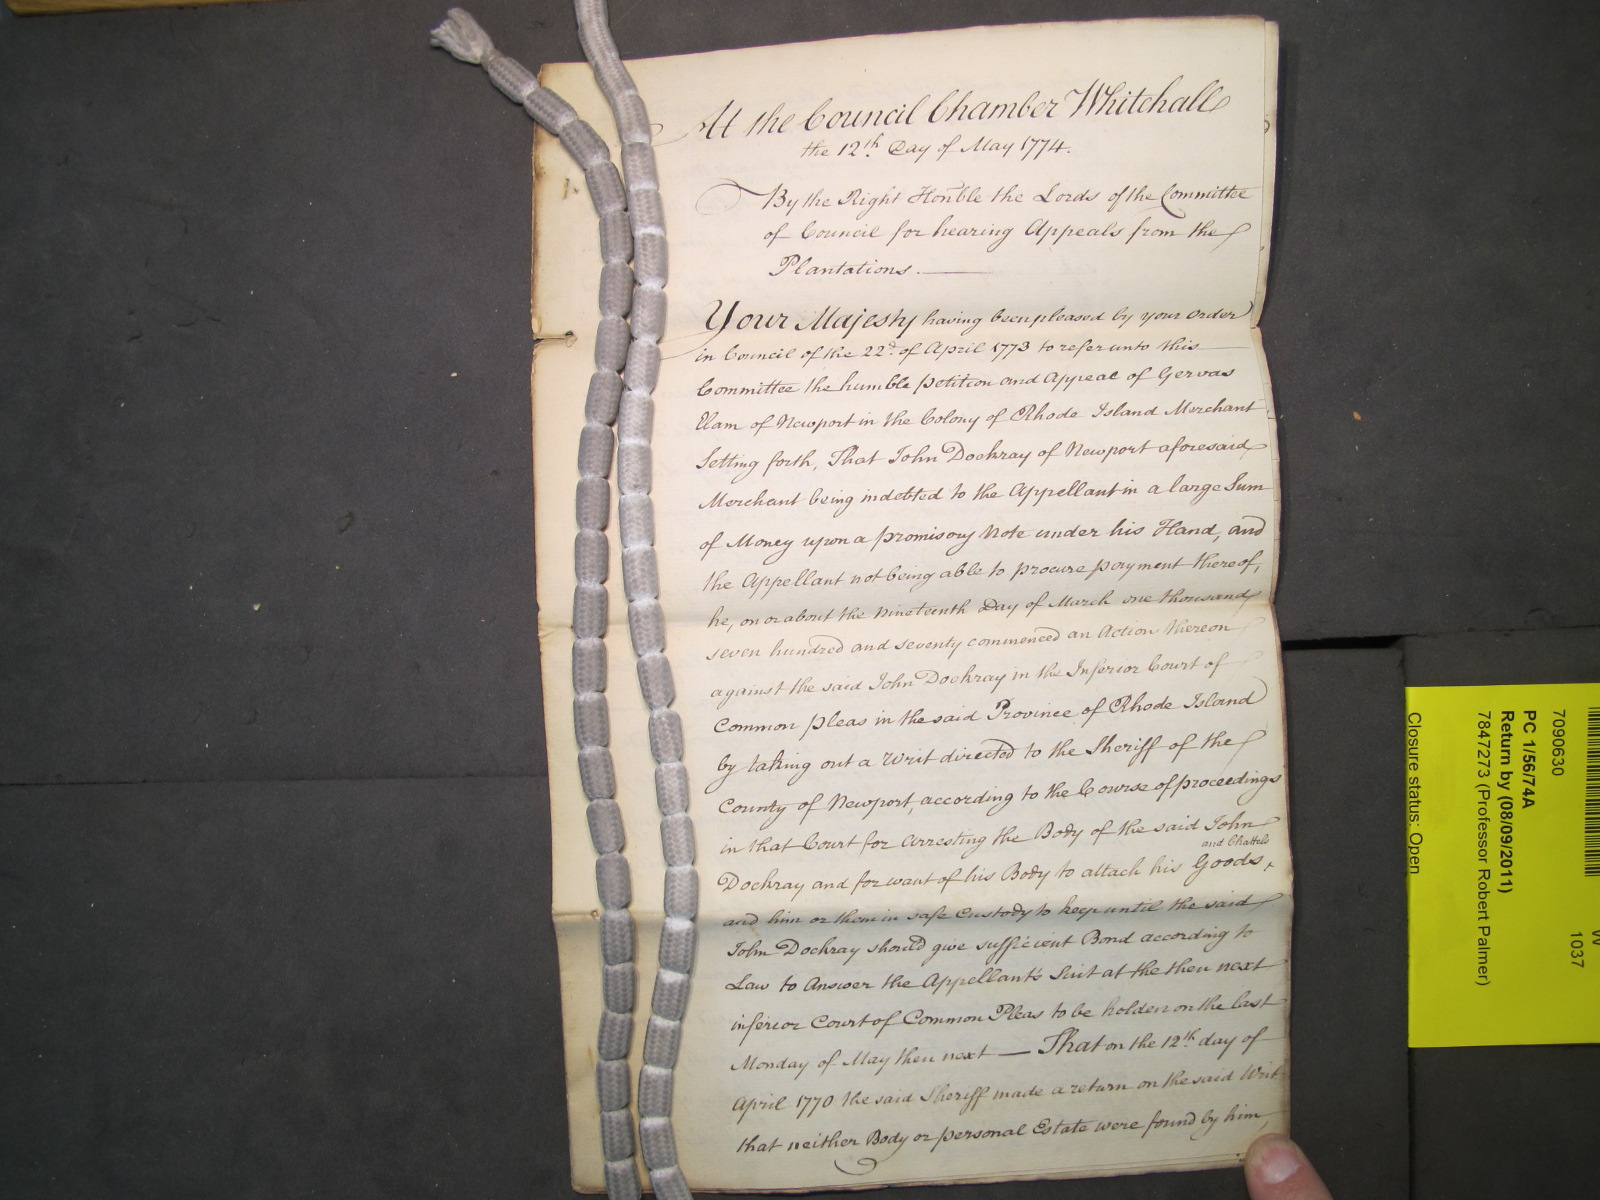 At the Council Chamber Whitehall
the 12th Day of May 1774.
By the Right Honble the Lords of the Committee
of Council for hearing Appeals from the
Plantations.
Your Majesty having been pleased by your Order
in Council of the 22d. of April 1773 to refer unto this
Committee the humble petition and Appeal of Gervas
Elam of Newport in the Colony of Rhode Island Merchant
Setting forth, That John Dockray of Newport aforesaid
Merchant being indebted to the Appellant in a large Sum
of Money upon a promisory Note under his Hand, and
the Appellant not being able to procure payment thereof,
he, on or about the Nineteenth Day of March one thousand
seven hundred and seventy commenced an Action thereon
against the said John Dockray in the Inferior Court of
Common pleas in the said Province of Rhode Island
by taking out a Writ directed to the Sheriff of the
County of Newport, according to the Course of proceedings
in that Court for Arresting the Body of the said John
and Chattels
Dockray and for want of his Body to attach his Goods,
and him or them in safe Custody to keep until the said
John Dockray should give sufficient Bond according to
Law to Answer the Appellant's Suit at the then next
inferior Court of Common Pleas to be holden on the last
Monday of May then next — That on the 12th day of
April 1770 the said Sheriff made a return on the said Writ
that neither Body or personal Estate were found by him,
7090630
PC 1/56/74A
Return by (08/09/2011)
7847273 (Professor Robert Palmer)
Closure status: Open
W
1037